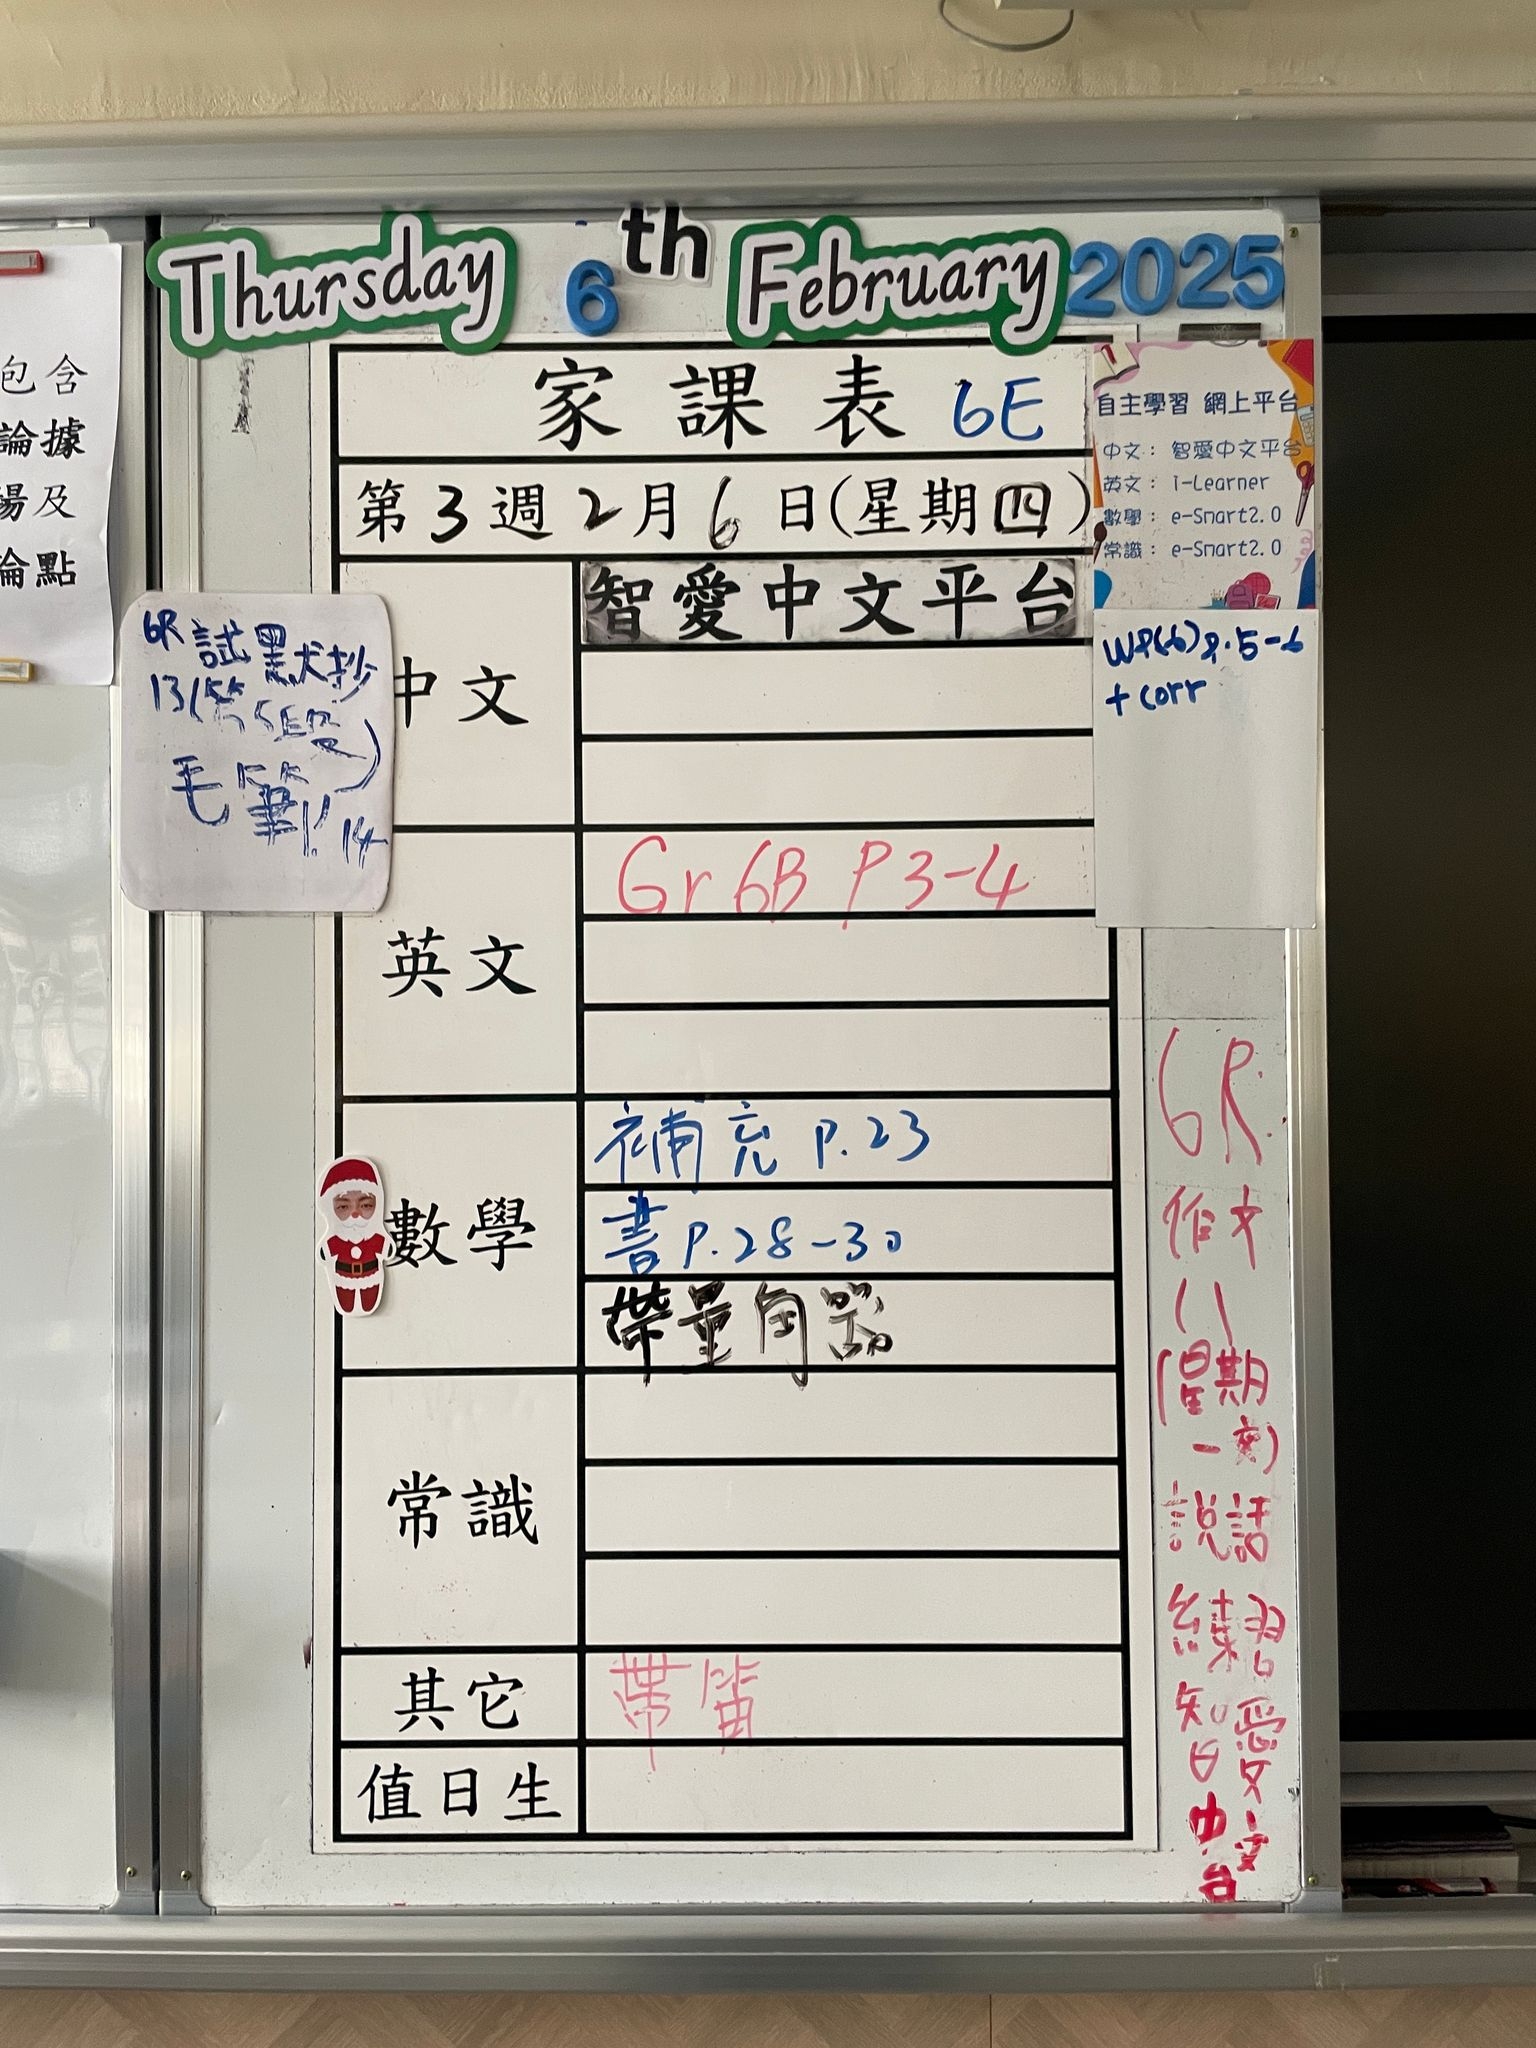 包含
論據
及
論點
Thursday 6th February 2025
家課表 6E
第3週2月6日(星期四)
自主學習 網上平台
中文： 智愛中文平台
英文： i-Learner
數學： e-Smart2.0
常識： e-Smart2.0
6R 試默抄
13(第5段)
毛筆
14
中文
智愛中文平台
WP(6) P.5-6
+ corr
英文
Gr 6B P 3-4
數學
補充 P.23
書 P.28-30
帶量角器
常識
其它
帶笛
值日生
6R
作文
(星期
一交)
說話
練習